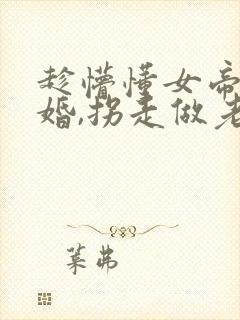 趁懵懂女帝
婚,拐走做老
菜弗